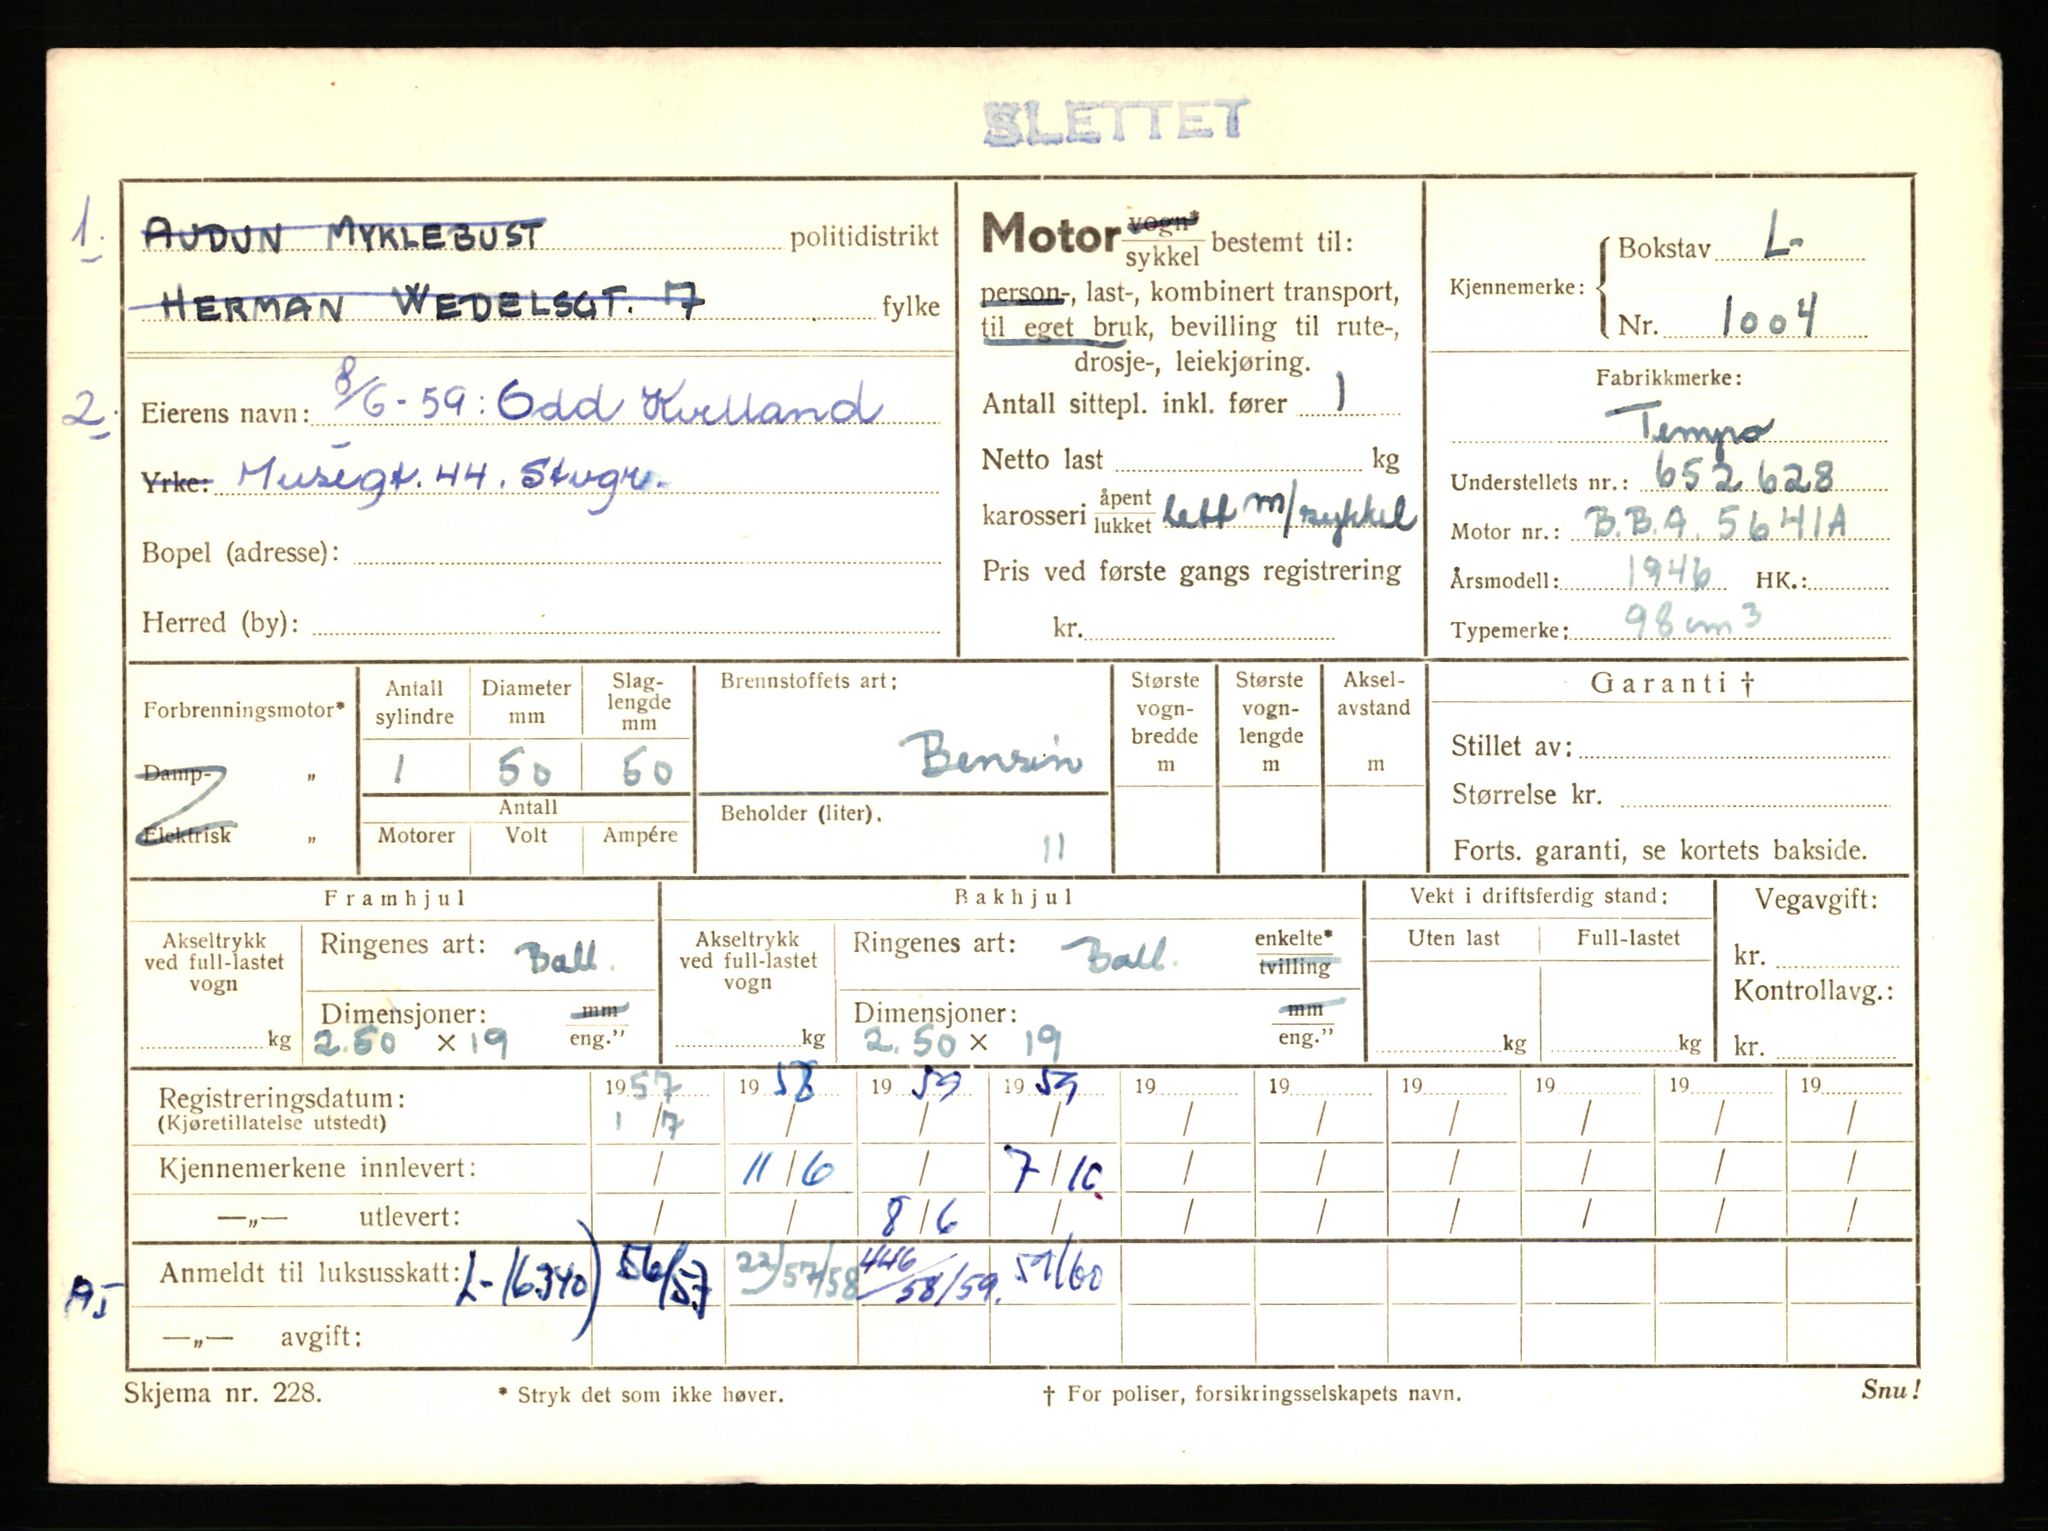 SLETTET
1. AUDUN MYKLEBUST politidistrikt
HERMAN WEDELSGT. 7 fylke
2. Eierens navn: 8/6-59: Odd Kvelland
Yrke: Musegt. 44. Stvgr.
Bopel (adresse):
Herred (by):
Motor vogn* sykkel bestemt til:
person-, last-, kombinert transport,
til eget bruk, bevilling til rute-,
drosje-, leiekjøring.
Antall sittepl. inkl. fører 1
Netto last kg
karosseri åpent lukket Lett m/sykkel
Pris ved første gangs registrering
kr.
Kjennemerke: Bokstav L-
Nr. 1004
Fabrikkmerke:
Tempo
Understellets nr.: 652 628
Motor nr.: B.B.A. 5641A
Årsmodell: 1946 HK.:
Typemerke: 98 cm3
Forbrenningsmotor*
Damp- „
Elektrisk „
Antall sylindre Diameter mm Slag-lengde mm
1 50 50
Antall
Motorer Volt Ampére
Brennstoffets art:
Bensin
Beholder (liter).
11
Største vogn-bredde m
Største vogn-lengde m
Aksel-avstand m
Garanti †
Stillet av:
Størrelse kr.
Forts. garanti, se kortets bakside.
Framhjul
Akseltrykk ved full-lastet vogn kg
Ringenes art: Ball.
Dimensjoner: mm
2.50 × 19 eng.”
Bakhjul
Akseltrykk ved full-lastet vogn kg
Ringenes art: Ball. enkelte* tvilling
Dimensjoner: mm
2.50 × 19 eng.”
Vekt i driftsferdig stand:
Uten last Full-lastet
kg kg
Vegavgift:
kr.
Kontrollavg.:
kr.
Registreringsdatum: 1957 1958 1959 1959 19 19 19 19 19 19
(Kjøretillatelse utstedt) 1/7 / / / / / / / / /
Kjennemerkene innlevert: / 11/6 / 7/10. / / / / / /
—„— utlevert: / / 8/6 / / / / / / /
Anmeldt til luksusskatt: L-16340) 56/57 22/57/58 446/58/59. 59/60
—„— avgift:
Skjema nr. 228. * Stryk det som ikke høver. † For poliser, forsikringsselskapets navn. Snu!